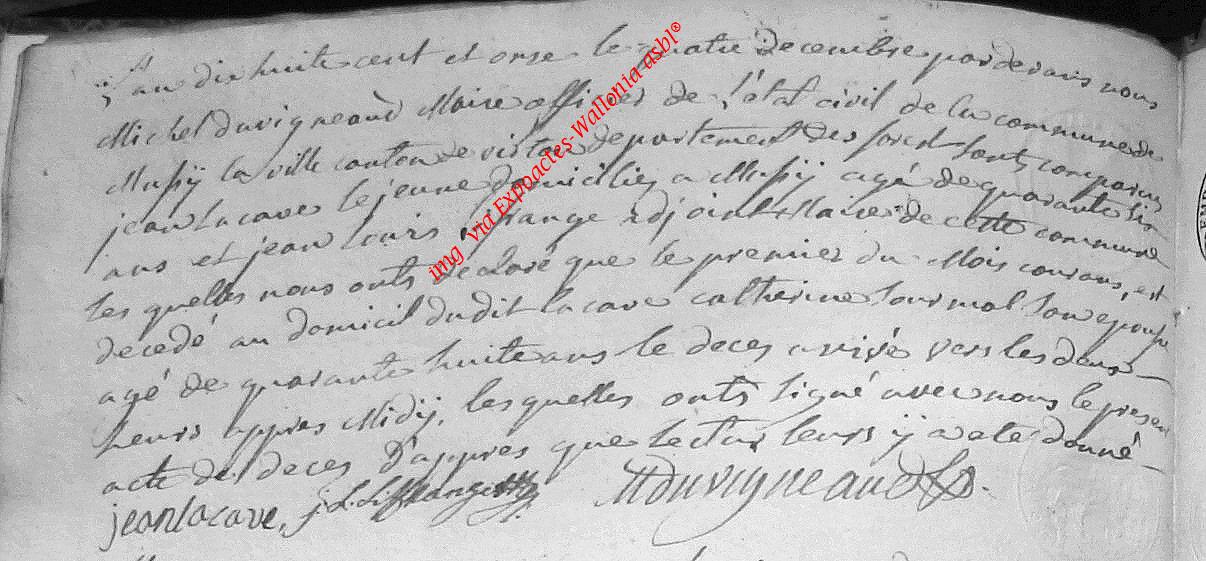 L'an dix huite cent et onse le quatre decembre pardevans nous
Michel duvigneaud Maire officier de l'état civil de la commune de
Mussÿ la ville canton de virton departement des forest sont comparus
jean lacave le jeune domicilieʒ a Mussÿ agé de quarante six
ans et jean louis lifrange adjoint Maire de cette commune
les quelles nous onts declaré que le premier du Mois courans, est
decedé au domicil dudit lacave catherine sonepouse
agé de quarante huite ans le deces arrivé vers les deux
heurs appres Midÿ, les quelles onts signé avec nous le presen
acte de deces d'appres que lectur leurs ÿ a eté donné
jean lacave, j L Lifrange MDuvigneaud
img via Expoactes-Wallonia asbl®